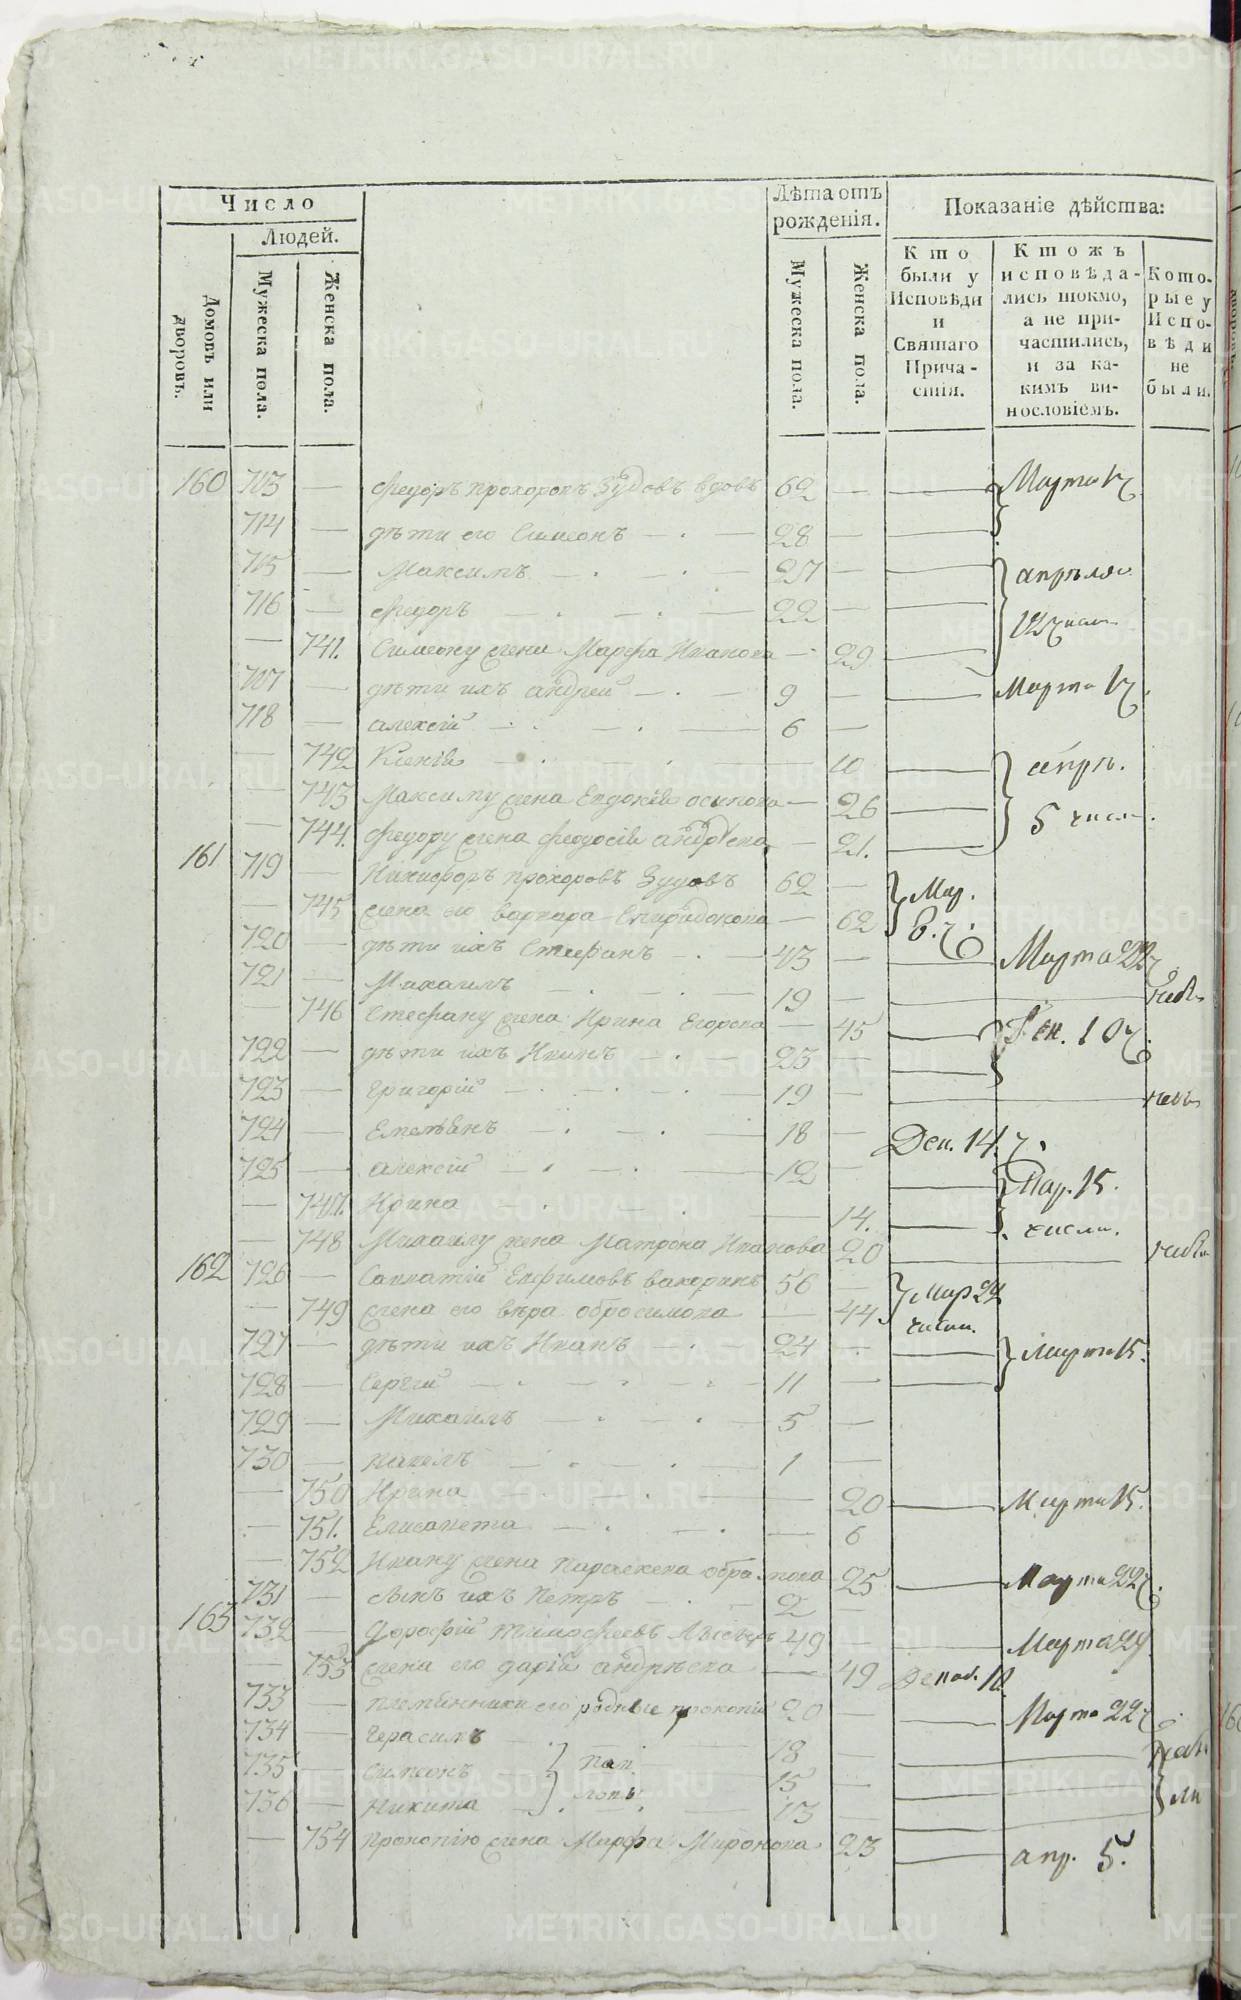 Число
Людей.
Домовъ или дворовъ.
Мужеска пола.
Женска пола.
Лѣта отъ рожденія.
Мужеска пола.
Женска пола.
Показаніе дѣйства:
Кто были у Исповѣди и Святаго Прича-стія.
Ктожъ исповѣда-лись токмо, а не при-частились, и за ка-кимъ ви-нословіемъ.
Кото-рые у Испо-вѣди не были.
160 713 — Федоръ Прохоровъ Зудовъ вдовъ 62 — — Марта
714 — дѣти его Симеонъ — 28 — —
715 — Максимъ — 27 — — апрѣля
716 — Федоръ — 22 — — 12 числ
— 741. Симеону жена Марфа Иванова — 29 —
717 — дѣти ихъ Андрей — 9 — — Марта
718 — Алексій — 6 —
— 742 Ксенія — 10 — апрѣ.
— 743 Максиму жена Евдокія Осипова — 26 — 5 числ.
— 744. Федору жена Феодосія Андреева — 21. —
161 719 — Никифоръ Прохоровъ Зудовъ 62 — Мар.
— 745 жена его Варвара Спиридонова — 62 6. ч.
720 — дѣти ихъ Стефанъ — 43 — — Марта 22 ч
721 — Михаилъ — 19 — — небы
— 746 Стефану жена Ирина Егорова — 45 — Ген. 10 ч.
722 — дѣти ихъ Иванъ — 23 — —
723 — Григорій — 19 — — небы
724 — Емельянъ — 18 — Ден. 14. ч.
725 — Алексій — 12 — — Мар. 15.
— 747. Ирина — 14. — числа.
— 748 Михаилу жена Матрона Иванова 20 — небы
162 726 — Савватій Евфимовъ Вахоринъ 56 — Мар 22
— 749 жена его Вѣра Обросимова — 44 числа.
727 — дѣти ихъ Иванъ — 24 — — Марта 15.
728 — Сергій — 11 — —
729 — Михаилъ — 5 —
730 — Павелъ — 1 —
— 750 Ирина — 20 — Марта 15.
— 751. Елисавета — 6
— 752 Ивану жена Параскева 25 — Марта 22 ч.
731 — сынъ ихъ Петръ — 2 —
163 732 — Дорофій Тимофеевъ 49 — — Марта 29.
— 753 жена его Дарія Андрѣева — 49
733 — племянники его родные Прокопій 20 — — Марта 22 ч
734 — Герасимъ — 18 — — небы
735 — Симеонъ — 15 — ли
736 — Никита — 13 —
— 754 Прокопію жена Марфа Миронова 23 — апр. 5.
METRIKI.GASO-URAL.RU